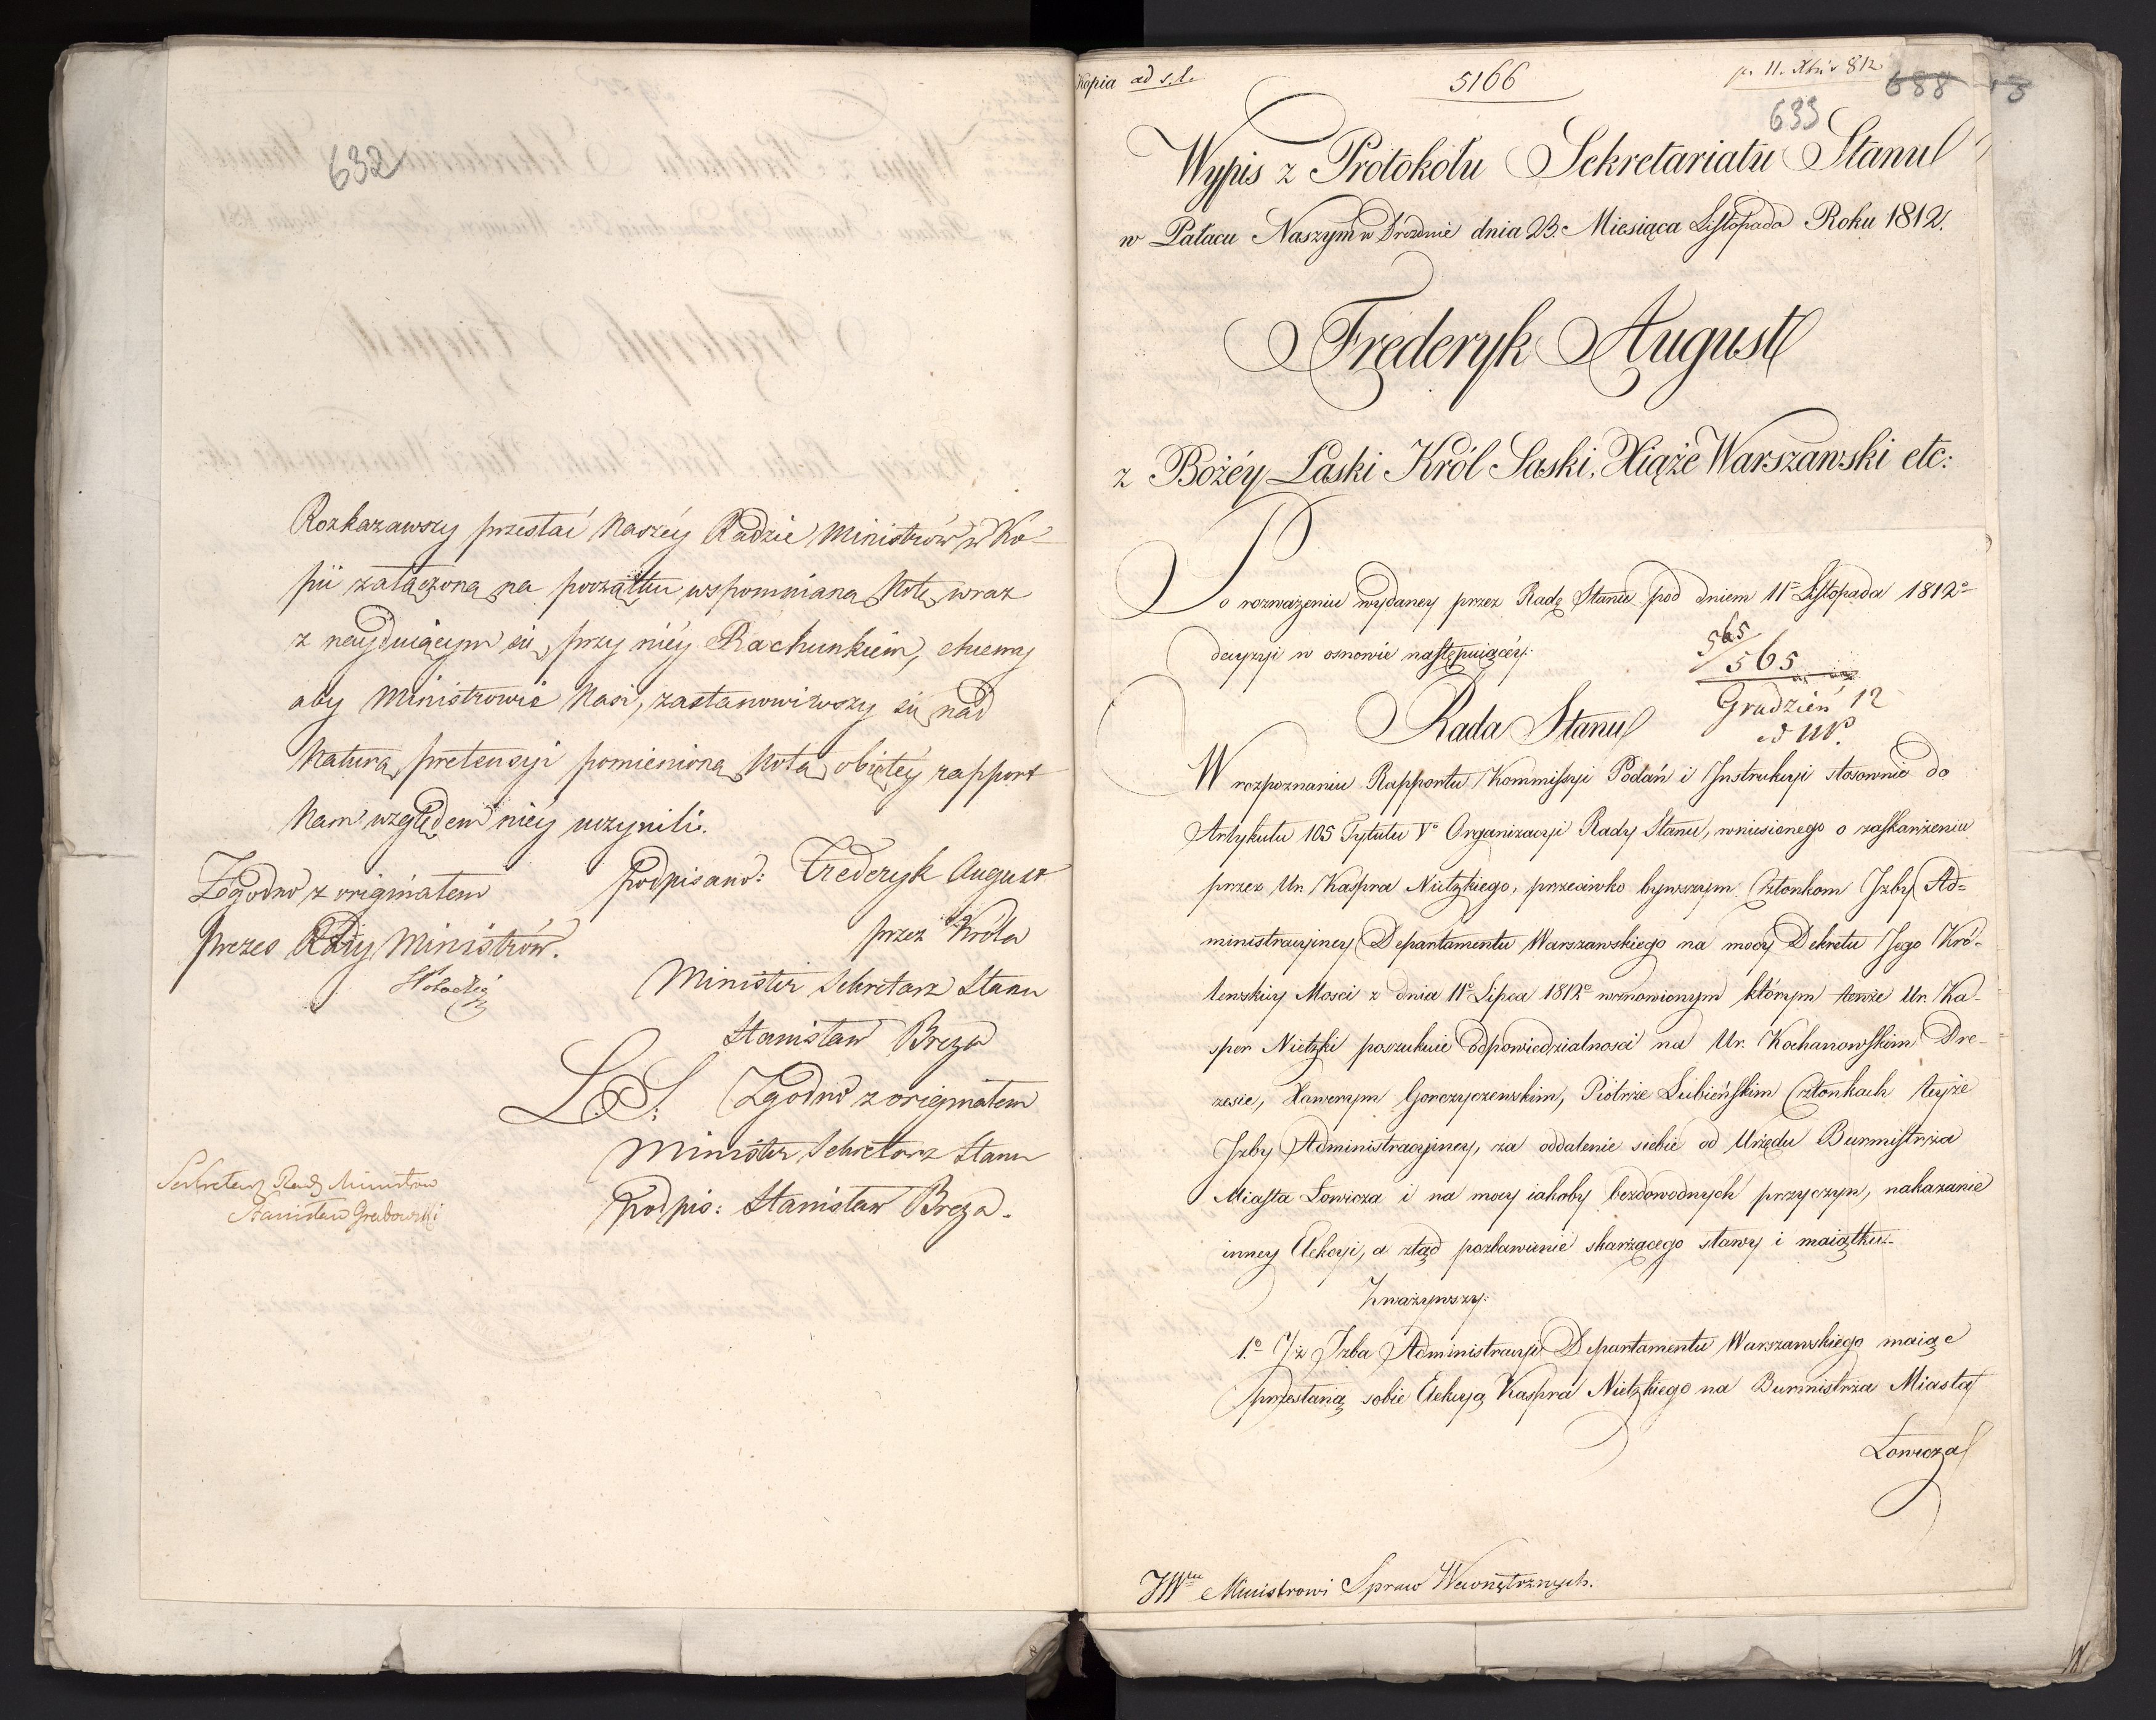 632
Rozkazawszy przesłać Naszéy Radzie Ministrów w Ko-
pii załączoną na początku wspomnianą Notę wraz
z neyduiącym się przy niéy Rachunkiem, chcemy
aby Ministrowie Nasi, zastanowiwszy się nad
Naturą pretensyi pomienioną Notą obiętéy rapport
Nam względem niéy uczynili.
Zgodno z originałem
Prezes Rady Ministrów.
Podpisano: Frederyk August
przez Króla
Minister Sekretarz Stanu
Stanisław Breza
L.S. Zgodno z originałem
Minister Sekretarz Stanu
Podpis: Stanisław Breza.
Sekretarz Rady Ministrów
Stanisław Grabowski
Kopia ad s.l.
5166
pr. 11. Xbris 812
688
633
Wypis z Protokółu Sekretariatu Stanu
w Pałacu Naszym w Dreźnie dnia 23. Miesiąca Listopada Roku 1812.
Frederyk August
z Bożéy Łaski Król Saski, Xiąże Warszawski etc:
Po rozważeniu wydaney przez Radę Stanu pod dniem 11º Listopada 1812º
decyzyi w osnowie następuiącéy:
565
565
Grudzień 12
Rada Stanu
W rozpoznaniu Rapportu Kommissyi Podań i Instrukcyi stosownie do
Artykułu 105 Tytułu Vº Organizacyi Rady Stanu, wniesionego o zaskarżeniu
przez Ur. Kaspra Nietzkiego, przeciwko bywszym Członkom Izby Ad=
ministracyiney Departamentu Warszawskiego na mocy Dekretu Jego Kró-
lewskiey Mosci z dnia 11º Lipca 1812º wznowionym którym tenże Ur. Ka-
sper Nietzki poszukuie odpowiedzialnosci na Ur. Kochanowskim Pre-
zesie, Xawerym Gorczyczewskim, Piotrze Łubieńskim Członkach teyże
Izby Administracyiney, za oddalenie siebie od Urzędu Burmistrza
Miasta Łowicza i na mocy iakoby bezdowodnych przyczyn, nakazanie
inney Elekcyi, a ztąd pozbawienie skarżącego sławy i maiątku.
Zważywszy:
1.º Iż Izba Administracyi Departamentu Warszawskiego maiąc
przesłaną sobie Elekcyą Kaspra Nietzkiego na Burmistrza Miasta
Łowicza
JWmu Ministrowi Spraw Wewnętrznych.